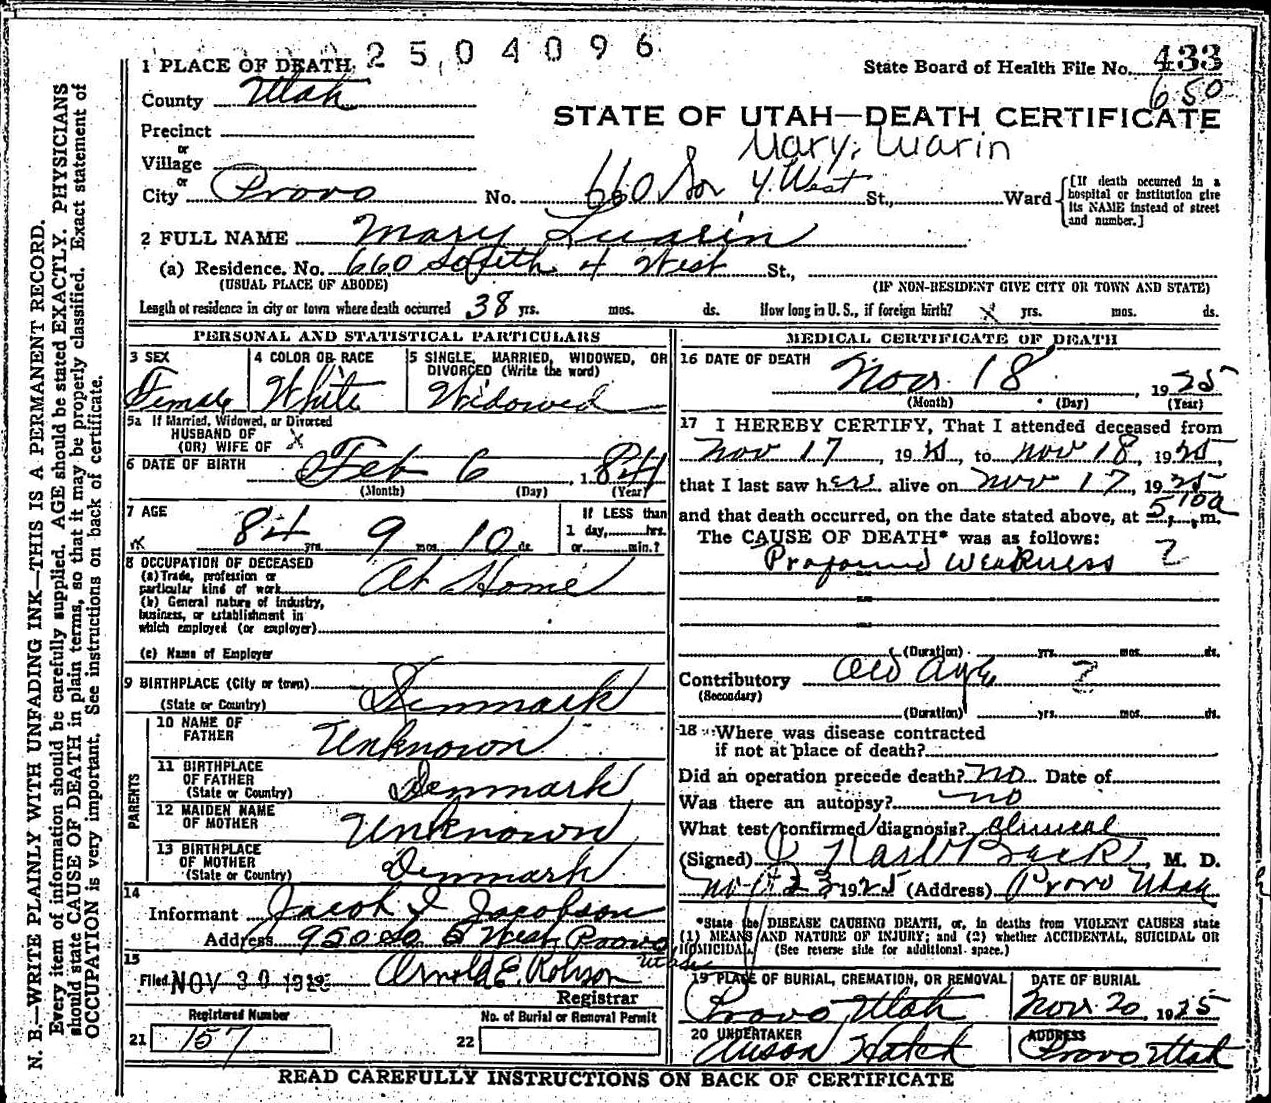 2504096
1 PLACE OF DEATH
State Board of Health File No. 433
650
County Utah
STATE OF UTAH—DEATH CERTIFICATE
Precinct
Mary, Luarin
or
Village
or
City Provo No. 660 So 4 West St., Ward
[If death occurred in a hospital or institution give its NAME instead of street and number.]
2 FULL NAME Mary Luarin
(a) Residence. No. 660 South 4 West St.,
(USUAL PLACE OF ABODE) (IF NON-RESIDENT GIVE CITY OR TOWN AND STATE)
Length of residence in city or town where death occurred 38 yrs. mos. ds. How long in U. S., if foreign birth? x yrs. mos. ds.
PERSONAL AND STATISTICAL PARTICULARS
3 SEX
Female
4 COLOR OR RACE
White
5 SINGLE, MARRIED, WIDOWED, OR
DIVORCED (Write the word)
Widowed
5a If Married, Widowed, or Divorced
HUSBAND OF
(OR) WIFE OF x
6 DATE OF BIRTH Feb 6, 1841
(Month) (Day) (Year)
7 AGE
84 yrs. 9 mos. 10 ds.
If LESS than
1 day, hrs.
or min.?
8 OCCUPATION OF DECEASED
(a) Trade, profession or
particular kind of work At Home
(b) General nature of industry,
business, or establishment in
which employed (or employer)
(c) Name of Employer
9 BIRTHPLACE (City or town)
(State or Country) Denmark
PARENTS
10 NAME OF
FATHER Unknown
11 BIRTHPLACE
OF FATHER
(State or Country) Denmark
12 MAIDEN NAME
OF MOTHER Unknown
13 BIRTHPLACE
OF MOTHER
(State or Country) Denmark
14
Informant Jacob I Jacobson
Address 950 So. 5 West Provo Utah
15
Filed NOV 30 192 Arnold E. Robison
Registrar
Registered Number
21 157
No. of Burial or Removal Permit
22
MEDICAL CERTIFICATE OF DEATH
16 DATE OF DEATH
Nov. 18, 1925
(Month) (Day) (Year)
17 I HEREBY CERTIFY, That I attended deceased from
Nov 17, 1925, to Nov 18, 1925,
that I last saw her alive on Nov 17, 1925
and that death occurred, on the date stated above, at 5 10a m.
The CAUSE OF DEATH* was as follows:
Profound Weakness ?
(Duration) yrs. mos. ds.
Contributory Old Age ?
(Secondary)
(Duration) yrs. mos. ds.
18 Where was disease contracted
if not at place of death?
Did an operation precede death? no Date of
Was there an autopsy? no
What test confirmed diagnosis? clinical
(Signed) , M. D.
Nov 23 1925 (Address) Provo Utah
*State the DISEASE CAUSING DEATH, or, in deaths from VIOLENT CAUSES state
(1) MEANS AND NATURE OF INJURY; and (2) whether ACCIDENTAL, SUICIDAL OR
HOMICIDAL. (See reverse side for additional space.)
19 PLACE OF BURIAL, CREMATION, OR REMOVAL
Provo Utah
DATE OF BURIAL
Nov. 20, 1925
20 UNDERTAKER
Hatch
ADDRESS
Provo Utah
READ CAREFULLY INSTRUCTIONS ON BACK OF CERTIFICATE
N. B.—WRITE PLAINLY WITH UNFADING INK—THIS IS A PERMANENT RECORD.
Every item of information should be carefully supplied. AGE should be stated EXACTLY. PHYSICIANS
should state CAUSE OF DEATH in plain terms, so that it may be properly classified. Exact statement of
OCCUPATION is very important. See instructions on back of certificate.